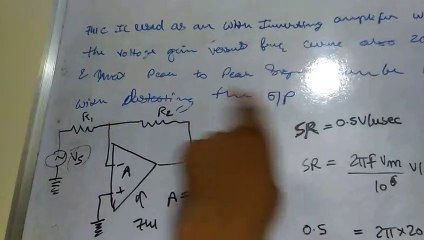 IC is used as an Inverting amplifier
the voltage gain versus freq curve also 20
& max Peak to Peak be
with distorting the O/P
R₁ R₂
SR = 0.5V/μsec
Vs - A
+
A =
SR = 2πf Vm / 10⁶ V/
741
0.5 = 2π×20